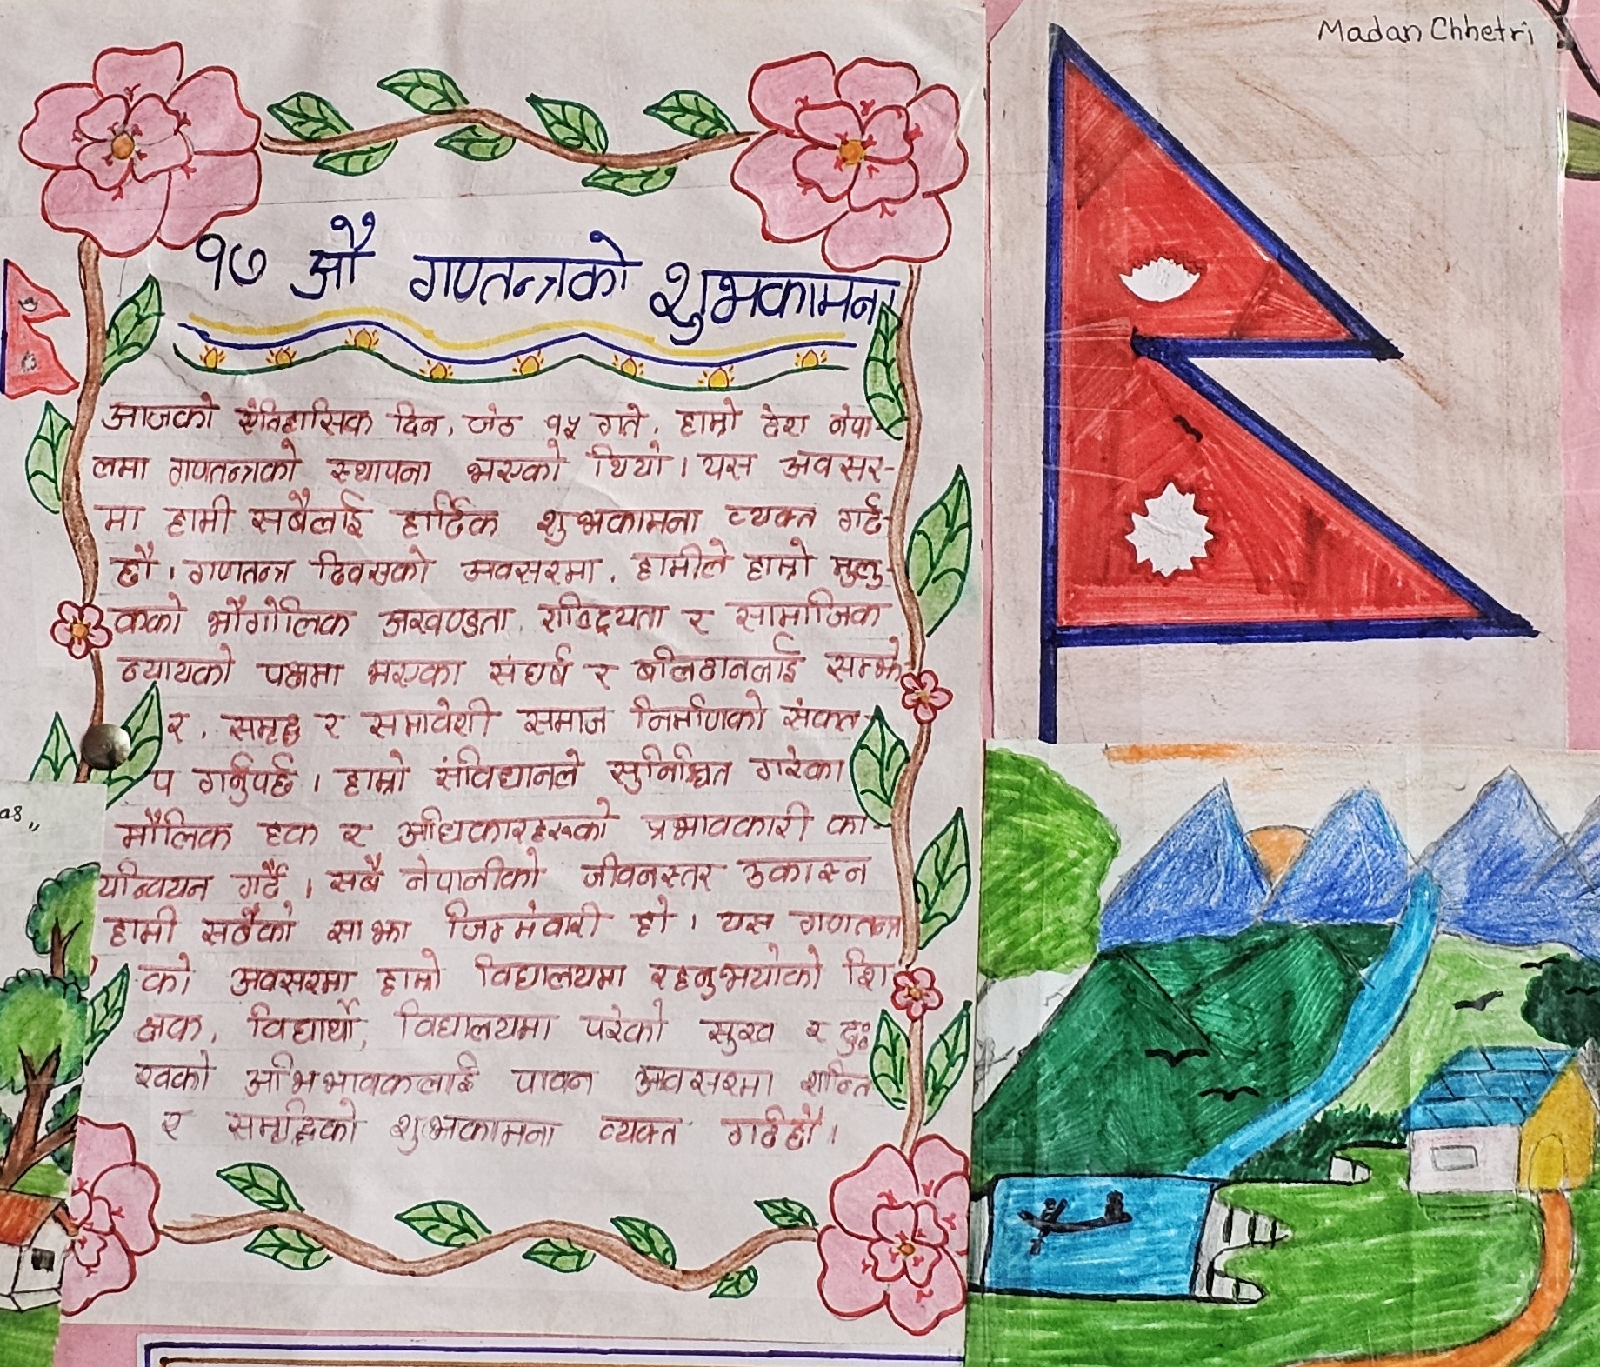 १७ औं गणतन्त्रको शुभकामना
आजको ऐतिहासिक दिन, जेठ १५ गते, हाम्रो देश नेपा-
लमा गणतन्त्रको स्थापना भएको थियो। यस अवसर-
मा हामी सबैलाई हार्दिक शुभकामना व्यक्त गर्द-
छौं। गणतन्त्र दिवसको अवसरमा, हामीले हाम्रो मुलु-
कको भौगोलिक अखण्डता, राष्ट्रियता र सामाजिक
न्यायको पक्षमा भएका संघर्ष र बलिदानलाई सम्झे
र, समृद्ध र समावेशी समाज निर्माणको संकल-
प गर्नुपर्छ। हाम्रो संविधानले सुनिश्चित गरेका
मौलिक हक र अधिकारहरूको प्रभावकारी का-
र्यान्वयन गर्दै। सबै नेपालीको जीवनस्तर उकास्न
हामी सबैको साझा जिम्मेवारी हो। यस गणतन्त्र
को अवसरमा हाम्रो विद्यालयमा रहनुभयोको शि
क्षक, विद्यार्थी, विद्यालयमा परेको सुख र दुः
खको अभिभावकलाई पावन अवसरमा शान्ति
र समृद्धिको शुभकामना व्यक्त गर्दछौं।
Madan Chhetri